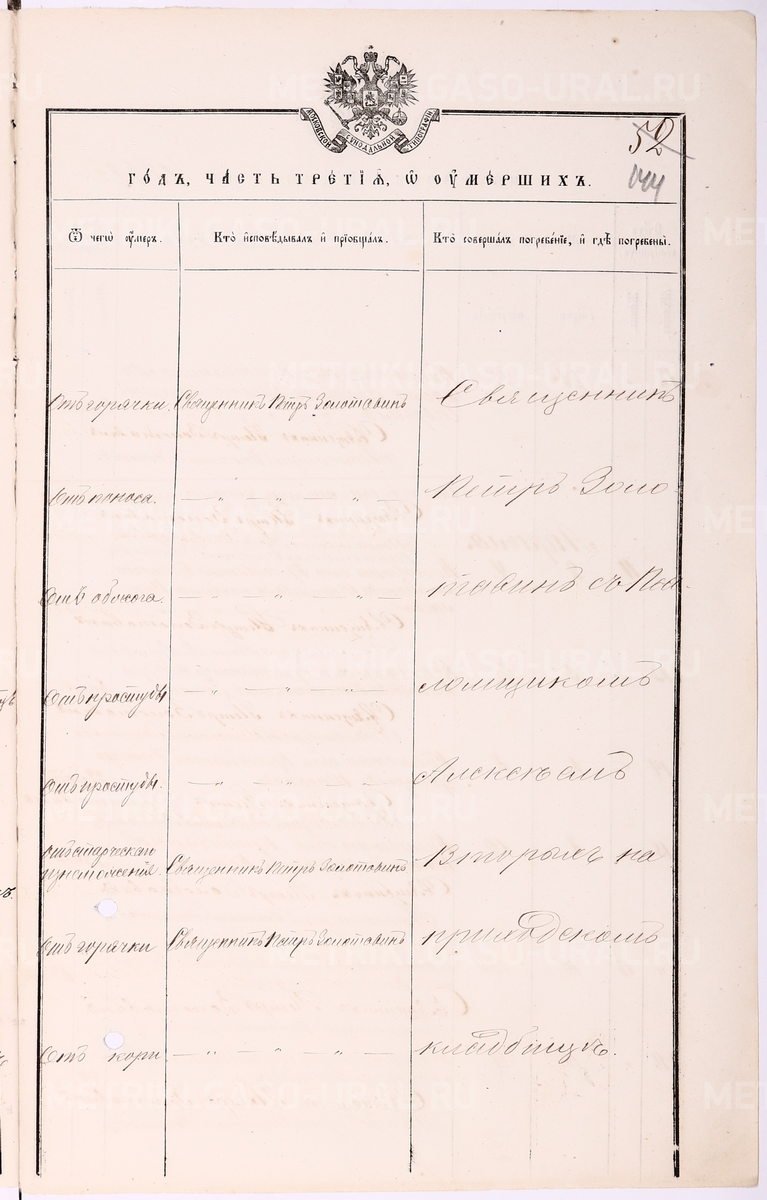 МОСКОВСКОЙ СѴНОДАЛЬНОЙ ТИПОГРАФІИ
52
144
ГО́ДЪ, ЧА́СТЬ ТРЕ́ТІѦ, Ѡ ОУМЕ́РШИХЪ.
Ѿ чегѡ̀ оу́меръ.
Кто̀ и҆сповѣ́дывалъ и҆ пріобща́лъ.
Кто̀ соверша́лъ погребе́ніе, и҆ гдѣ̀ погребены̀.
Отъ горячки Священникъ Петръ Золотавинъ
Священникъ
Отъ поноса. — „ — „ — „ —
Петръ Золо-
Отъ обжога. — „ — „ — „ —
тавинъ съ Пса-
Отъ простуды — „ — „ — „ —
ломщикомъ
Отъ простуды. — „ — „ — „ —
Алексѣемъ
Отъ старческаго
изнеможенія. Священникъ Петръ Золотавинъ
Вторымъ на
Отъ горячки Священникъ Петръ Золотавинъ
приходскомъ
Отъ кори — „ — „ — „ —
кладбищѣ.
METRIKI.GASO-URAL.RU